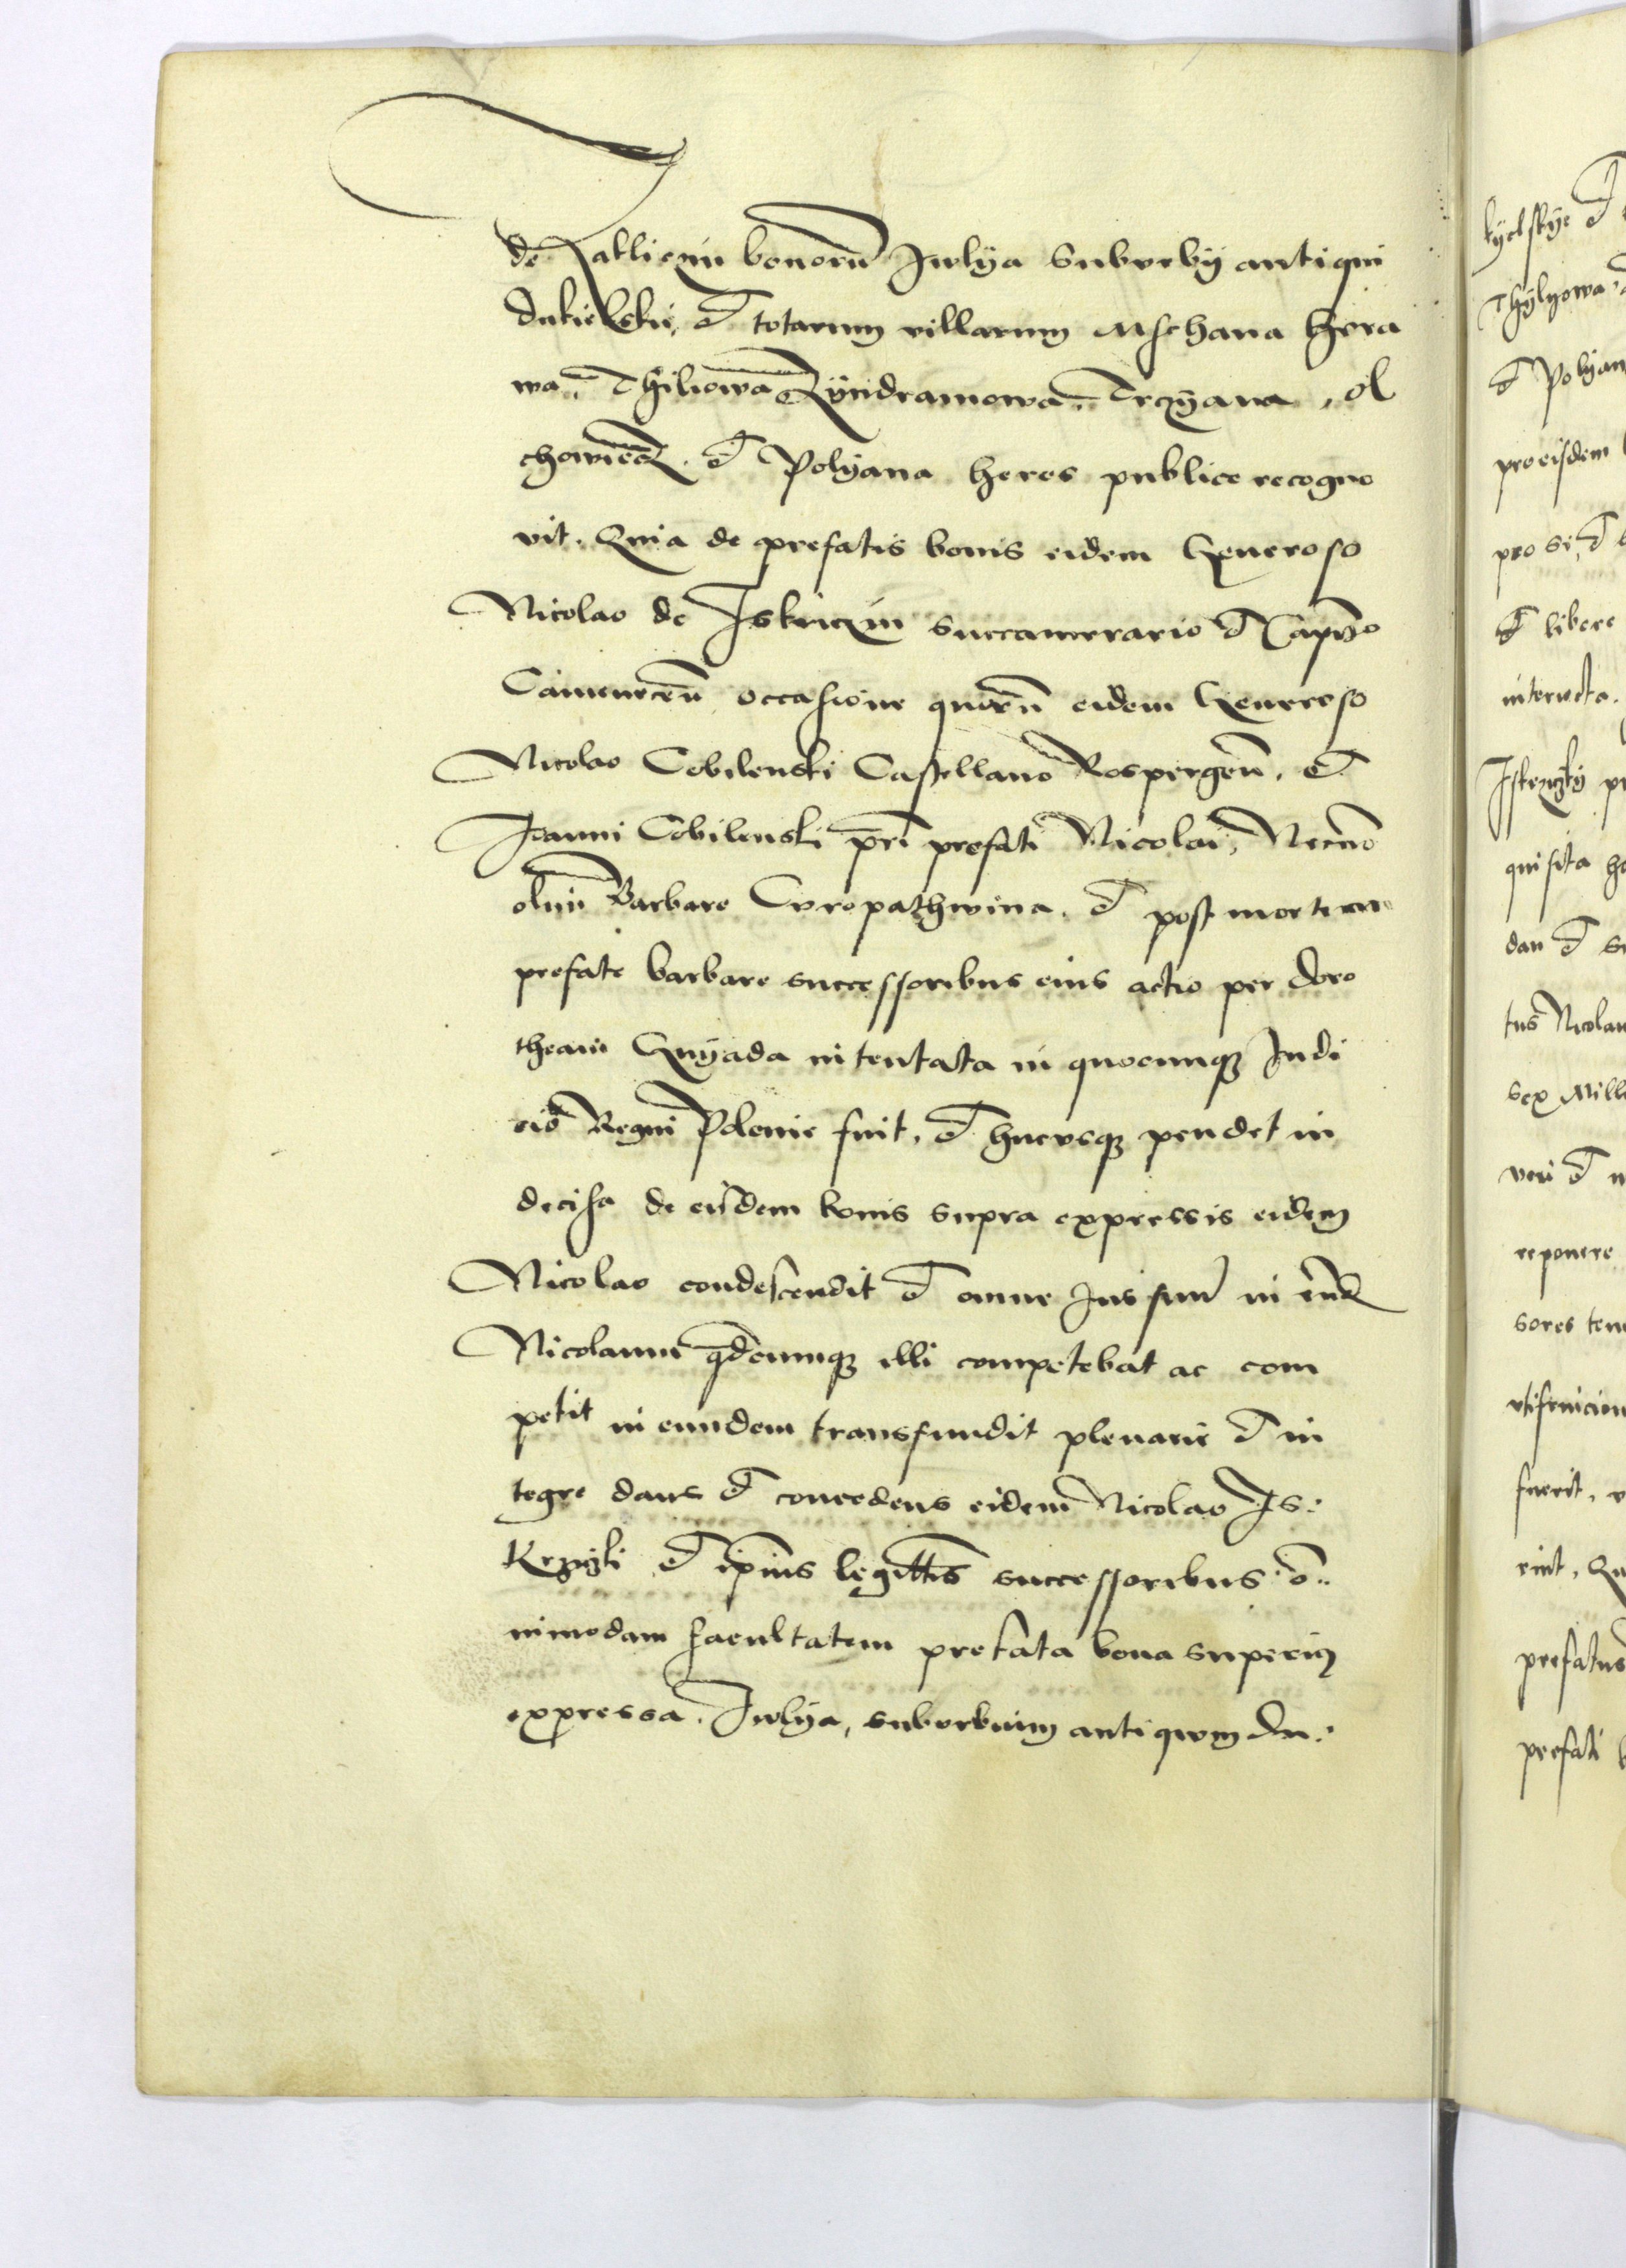 de Jatliczin bonorũ Iwlÿa Suburbÿ antiqui
Dukielskii, et totarum villarum Mschana Hÿra
wa, Thiliowa Zÿndramowa, Trczÿana, Ol
chowiecz. et Polÿana heres publice recogno
vit. Quia de prefatis bonis eidem Generoso
Nicolao de Iskriczin succamerario et Capnᵒ
Camenecen̄ occasione quor̄u eidem Generoso
Nicolao Cobilenski Castellano Rospergen̄. et
Joanni Cobilenski pr̄i prefati Nicolai, Necno
olim Barbare Curopathwina. et post mortem
prefate barbare successoribus eius actio per doro
theam Gnÿada intentata in quocumqꝫ Judi
cio Regni Polonie fuit, et hucusqꝫ pendet in
decisa de eisdem bonis supra expressis eidem
Nicolao condescendit et omne Jus suum in eund
Nicolaum qdcumqꝫ illi competebat ac com
petit in eundem transfundit plenarie et in
tegre dans et concedens eidem Nicolao Is:
krzÿcki et ip̄ius legittīs successoribus o:
nimodam facultatem prefata bona superius
expressa. Iwlÿa, suburbium antiquum Du:
kÿelskÿe et
Thÿlÿowa,
et Polÿan
pro eisdem
pro se, et
et libere
intercepta.
Iskrzÿcky pr
quisita
dan et
tus Nicolau
sex Mille
veri et
reponere
sores ten
utifruicion
fuerit,
rint, Qu
prefatus
prefati